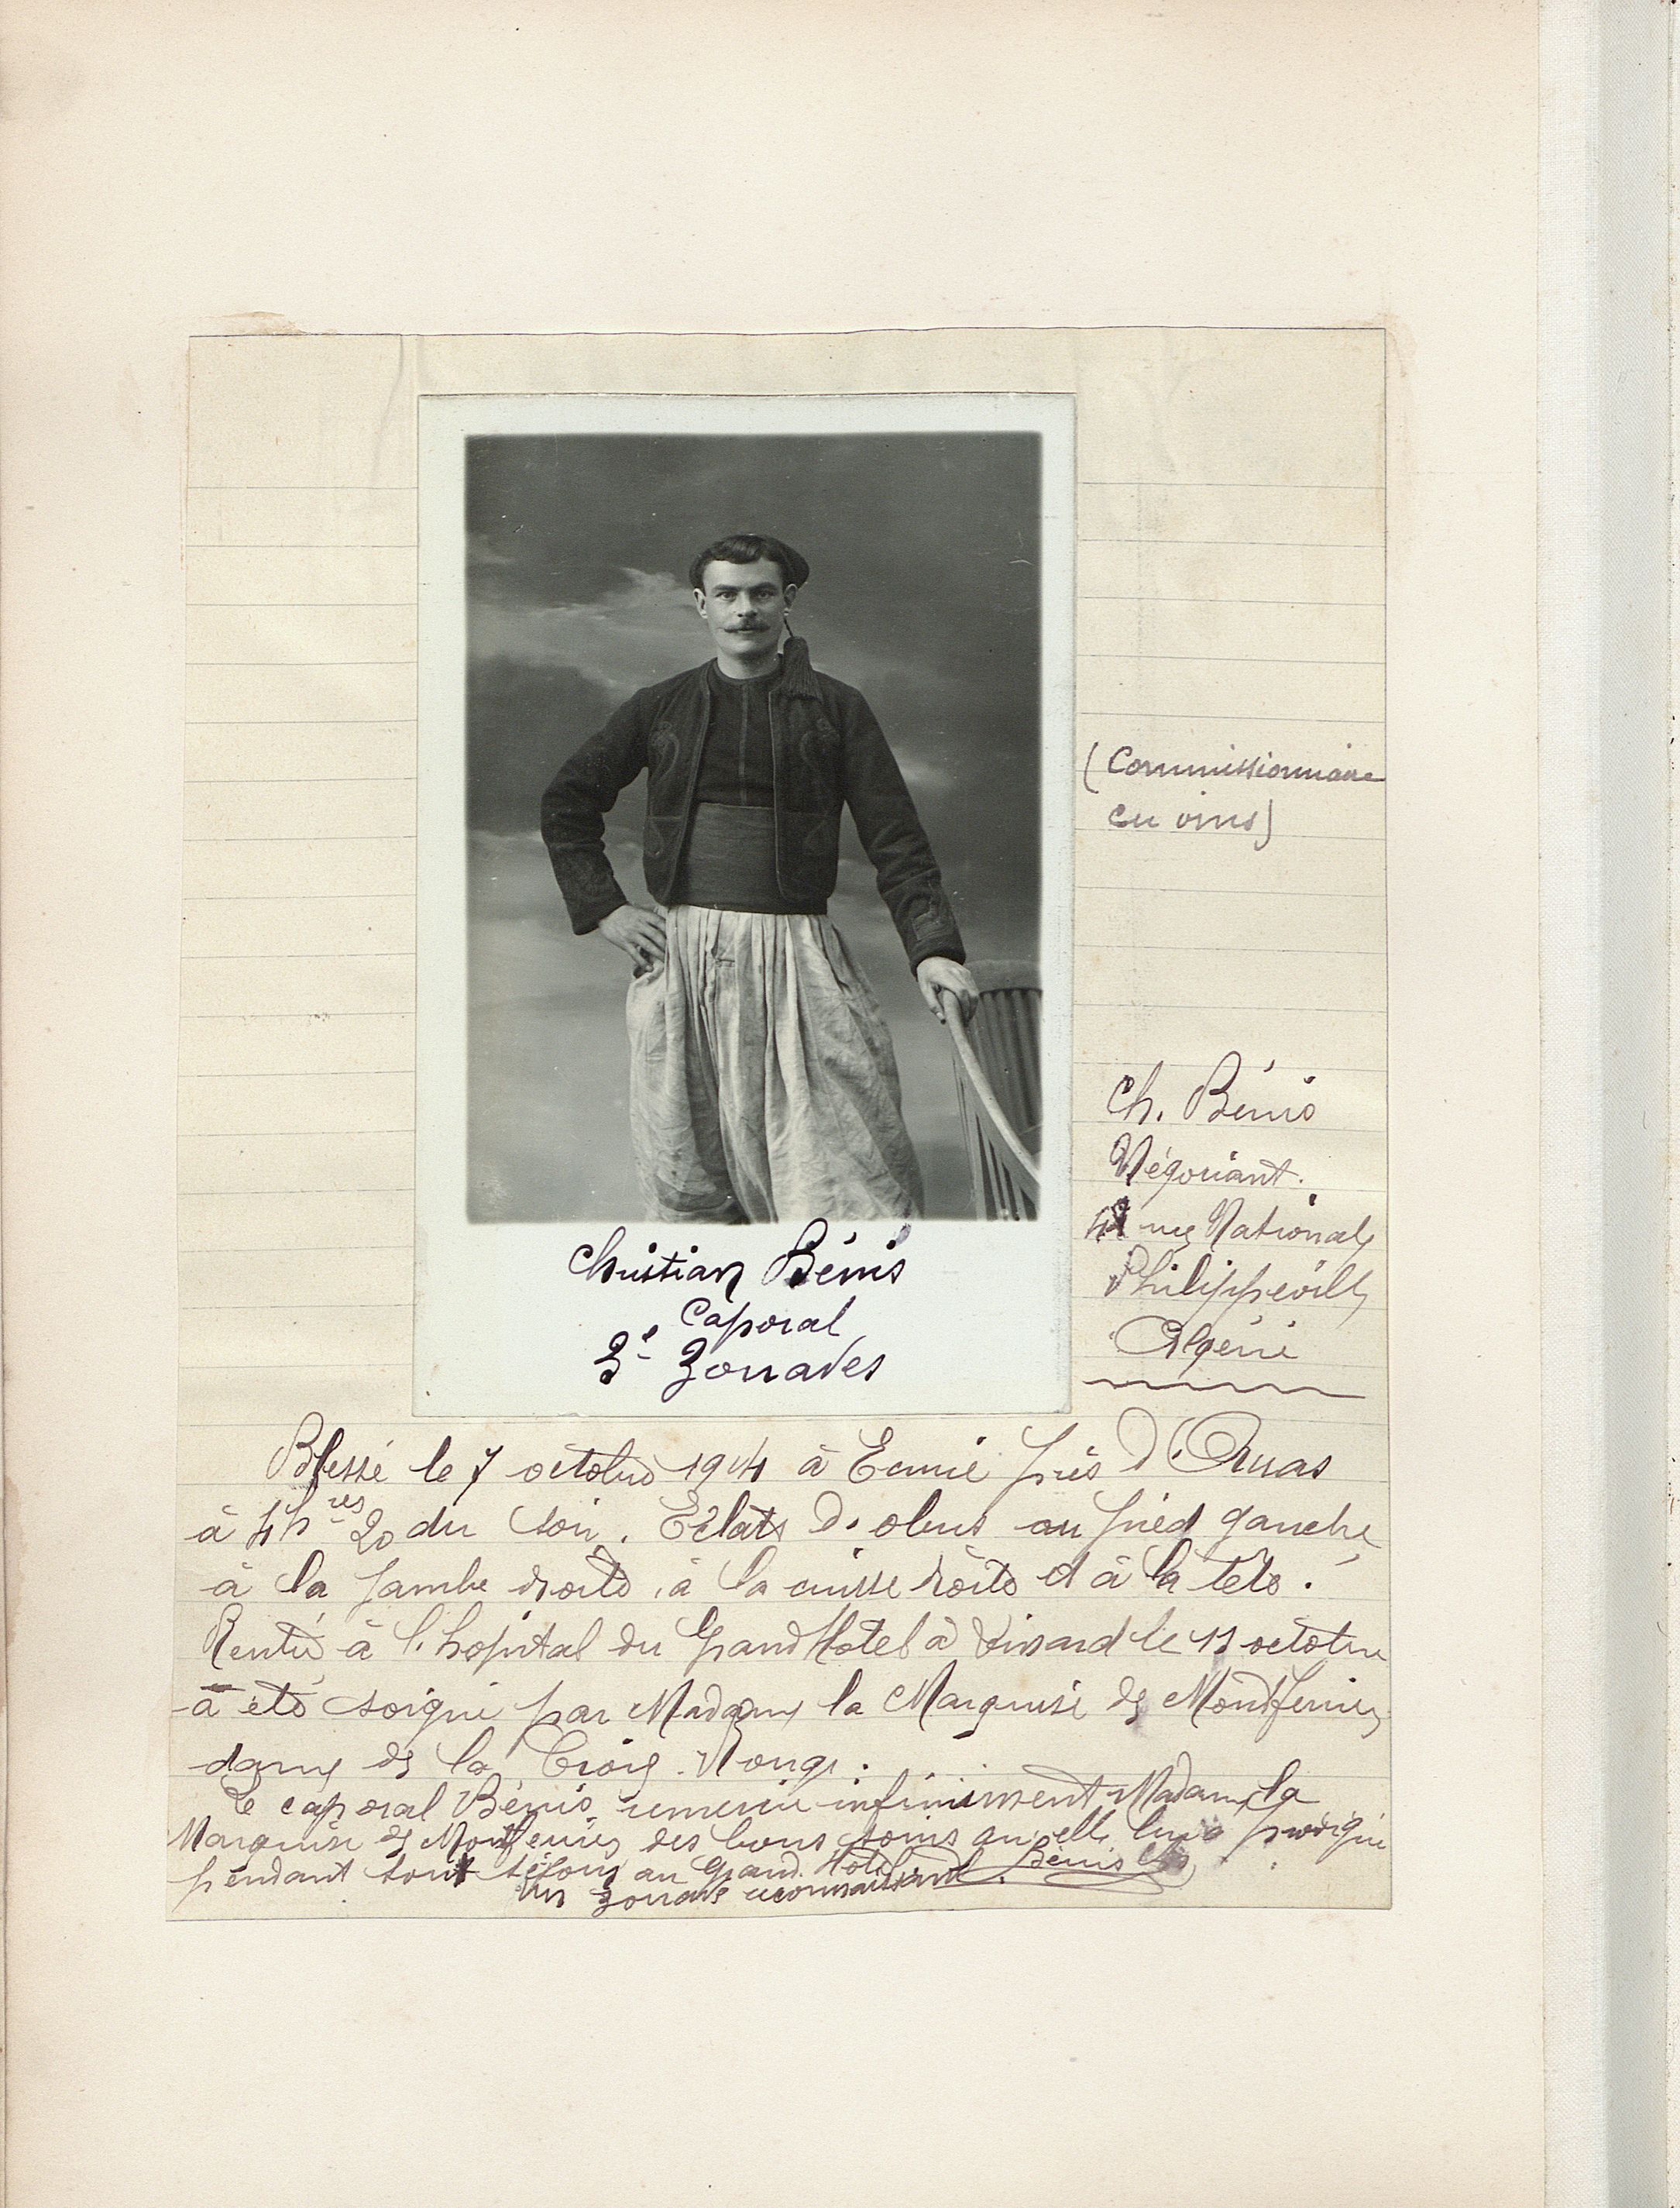 (Commissionnaire
en vins)
Ch. Bénis
Négociant.
rue Nationale
Philippeville
Algérie
Christian Bénis
Caporal
3e Zouaves
Blessé le 7 octobre 1914 à Ecurie près d'Arras
à 4hres 20 du soir. Eclats d'obus au pied gauche
à la jambe droite, à la cuisse droite et à la tête.
Rentré à l'hopital du Grand Hotel à Dinard le 11 octobre
a été soigné par Madame la Marquise de Montferrier
dame de la Croix-Rouge.
Le caporal Bénis remercie infiniment Madame la
Marquise de Montferrier des bons soins qu'elle lui a prodigué
pendant son séjour au Grand Hotel. Bénis Ch
Un zouave reconnaissant.